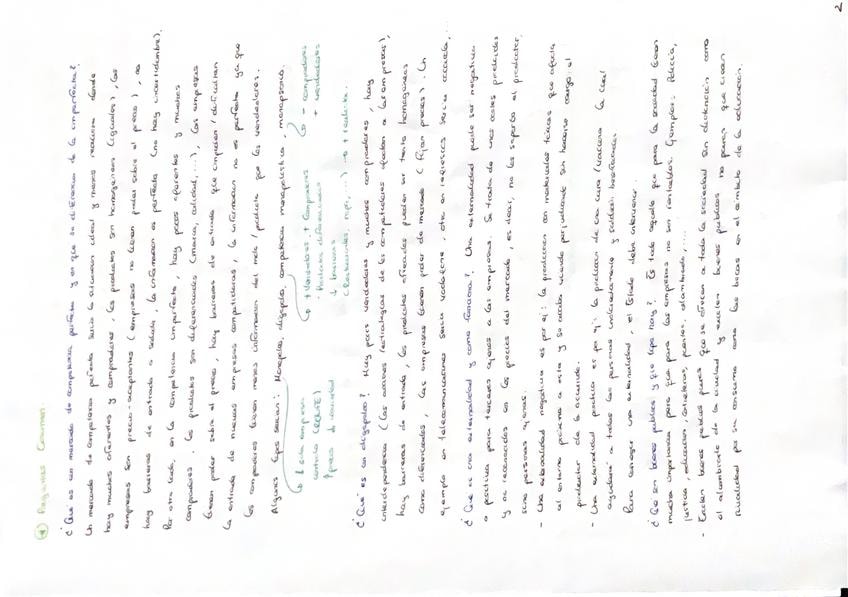 2
④ Preguntas Examen
¿Qué es un mercado de competencia perfecta y en que se diferencia de la imperfecta?
Un mercado de competencia perfecta sería la situación ideal y menos realista donde
hay muchos oferentes y compradores, los productos son homogéneos (iguales), las
empresas son precio-aceptantes (empresas no tienen poder sobre el precio), no
hay barreras de entrada o salida, la información es perfecta (no hay incertidumbre).
Por otro lado, en la competencia imperfecta, hay pocos oferentes y muchos
compradores. Los productos son diferenciados (marca, calidad,...), las empresas
tienen poder sobre el precio, hay barreras de entrada que impiden/dificultan
la entrada de nuevas empresas competidoras, la información no es perfecta ya que
los compradores tienen menos información del producto que los vendedores.
Algunos tipos serían: Monopolio, oligopolio, competencia monopolística, monopsonio.
1 sola empresa
controla
↑ precio ↓ cantidad
+ Vendedores, + Compradores
· Productos diferenciados
↓ barreras
(Restaurantes, ropa,...) → + realista.
- compradores
+ vendedores
¿Qué es un oligopolio? Hay pocos vendedores y muchos compradores, hay
interdependencia (las acciones/estrategias de los competidores afectan a las empresas),
hay barreras de entrada, los productos ofrecidos pueden ser tanto homogéneos
como diferenciados, las empresas tienen poder de mercado (fijan precios). Un
ejemplo en telecomunicaciones sería vodafone, otro en refrescos sería cocacola,...
¿Qué es una externalidad y como funciona? Una externalidad puede ser negativa
o positiva para terceros ajenos a las empresas. Se trata de unos costes producidos
y no reconocidos en los precios del mercado, es decir, no los soporta el productor,
sino personas ajenas.
- Una externalidad negativa es por ej: la producción con materiales tóxicos que afecta
al entorno próximo a esta y se acaba viendo perjudicado sin hacerse cargo el
productor de lo ocurrido.
- Una externalidad positiva es por ej: la producción de una cura/vacuna la cual
ayudará a todas las personas indirectamente y saldrán beneficiadas
Para corregir una externalidad, el Estado debe intervenir.
¿Qué son bienes públicos y que tipos hay? Es todo aquello que para la sociedad tienen
mucha importancia pero que para las empresas no son rentables. Ejemplos: Policía,
justicia, educación, carreteras, puentes, alumbrado,...
- Existen bienes públicos puros que se ofrecen a toda la sociedad sin distinción como
el alumbrado de la ciudad y existen bienes públicos no puros que crean
rivalidad por su consumo como las becas en el ámbito de la educación.